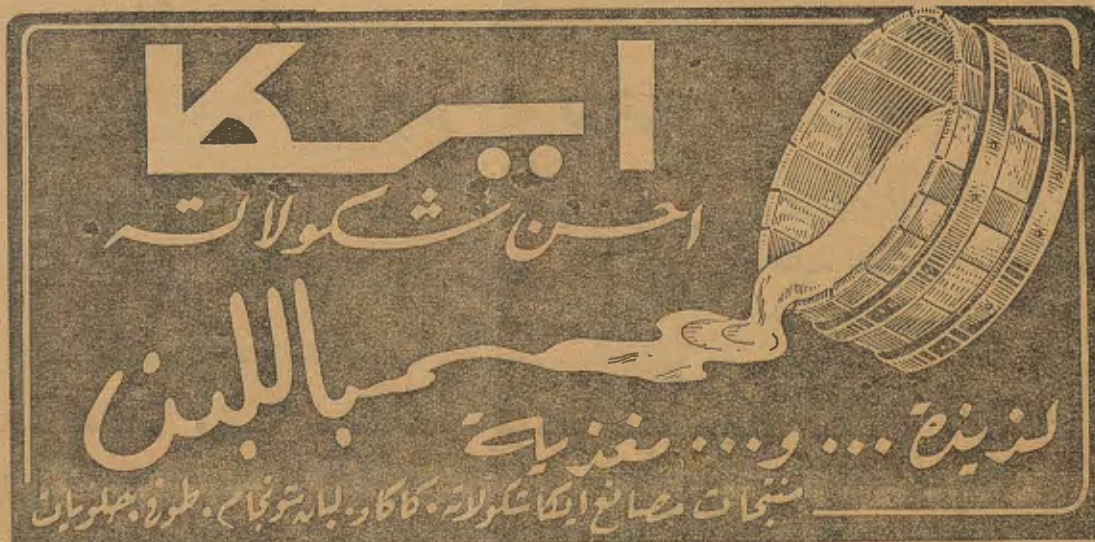 ايكا
احسن شكولاته
باللبن
لذيذة ... و ... مغذية
منتجات مصانع ايكا شكولاته . كاكاو . لبان . طوفى . حلويات